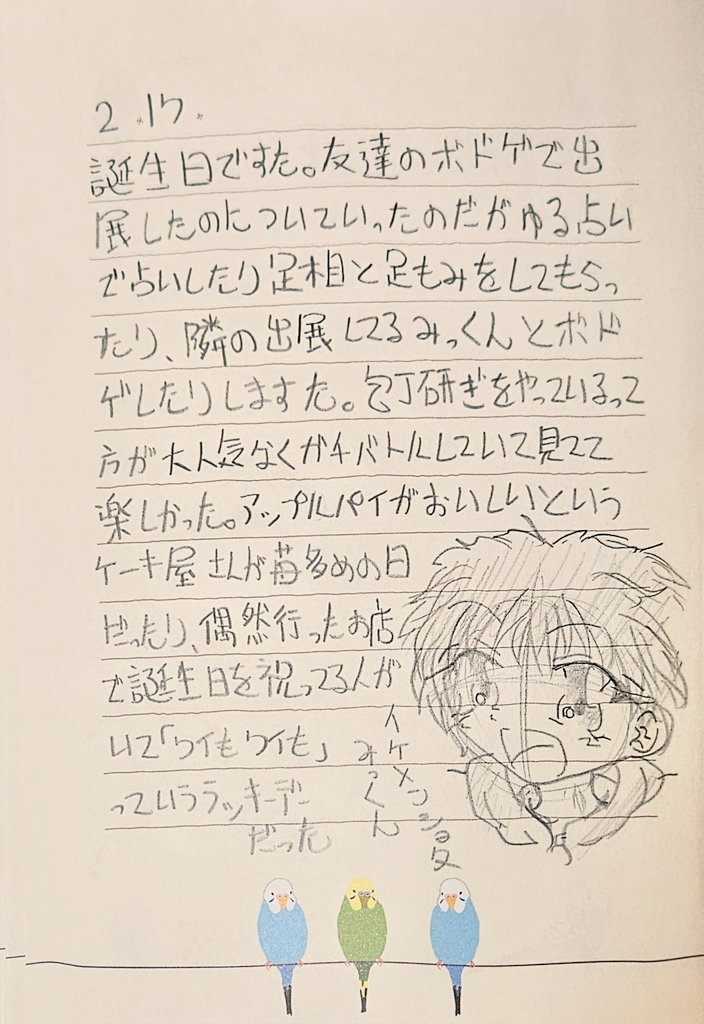 2.17.
誕生日ですた。友達のボドゲで出
展したのについていったのだがゆる占い
で占いしたり足相と足もみをしてもらっ
たり、隣の出展してるみっくんとボド
ゲしたりしますた。包丁研ぎをやっているって
方が大人気なくガチバトルしていて見てて
楽しかった。アップルパイがおいしいという
ケーキ屋さんが苺多めの日
だったり、偶然行ったお店
で誕生日を祝ってる人が
いて「ワイもワイも」
っていうラッキーデー
だった
イケメンショタ
みっくん